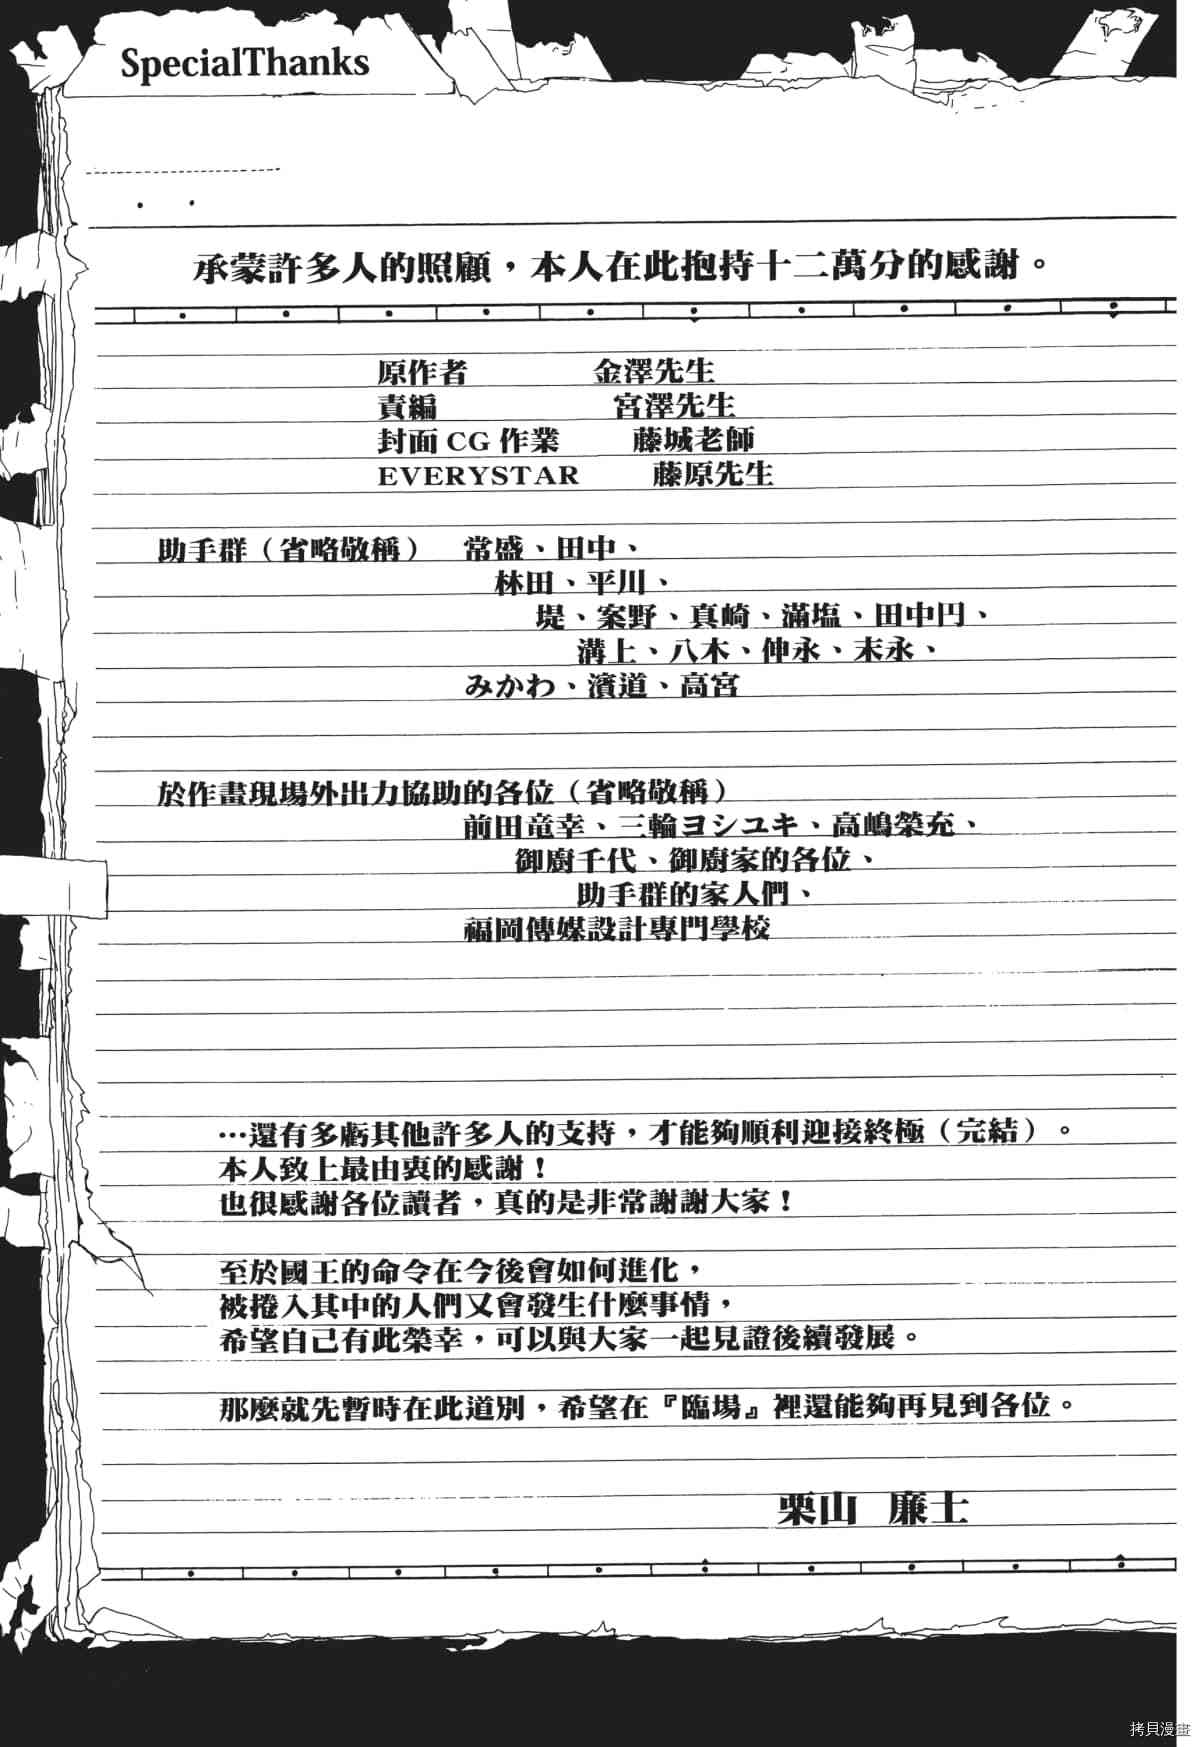 SpecialThanks
承蒙許多人的照顧，本人在此抱持十二萬分的感謝。
原作者 金澤先生
責編 宮澤先生
封面 CG 作業 藤城老師
EVERYSTAR 藤原先生
助手群（省略敬稱） 常盛、田中、
林田、平川、
堤、案野、真崎、滿塩、田中円、
溝上、八木、伸永、末永、
みかわ、濱道、高宮
於作畫現場外出力協助的各位（省略敬稱）
前田竜幸、三輪ヨシユキ、高嶋榮充、
御廚千代、御廚家的各位、
助手群的家人們、
福岡傳媒設計專門學校
…還有多虧其他許多人的支持，才能夠順利迎接終極（完結）。
本人致上最由衷的感謝！
也很感謝各位讀者，真的是非常謝謝大家！
至於國王的命令在今後會如何進化，
被捲入其中的人們又會發生什麼事情，
希望自己有此榮幸，可以與大家一起見證後續發展。
那麼就先暫時在此道別，希望在『臨場』裡還能夠再見到各位。
栗山 廉士
拷貝漫畫